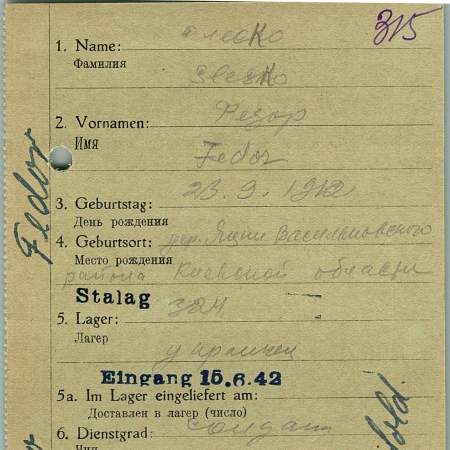 315
1. Name:
Фамилия
2. Vornamen: Федор
Имя
Fedor
3. Geburtstag: 23. 9. 1912
День рождения
4. Geburtsort: дер. Васильковского
Место рождения района Киевской области
Stalag 324
5. Lager:
Лагер
Eingang 15.6.42
5a. Im Lager eingeliefert am:
Доставлен в лагер (число)
6. Dienstgrad: солдат
Чин
Fedor